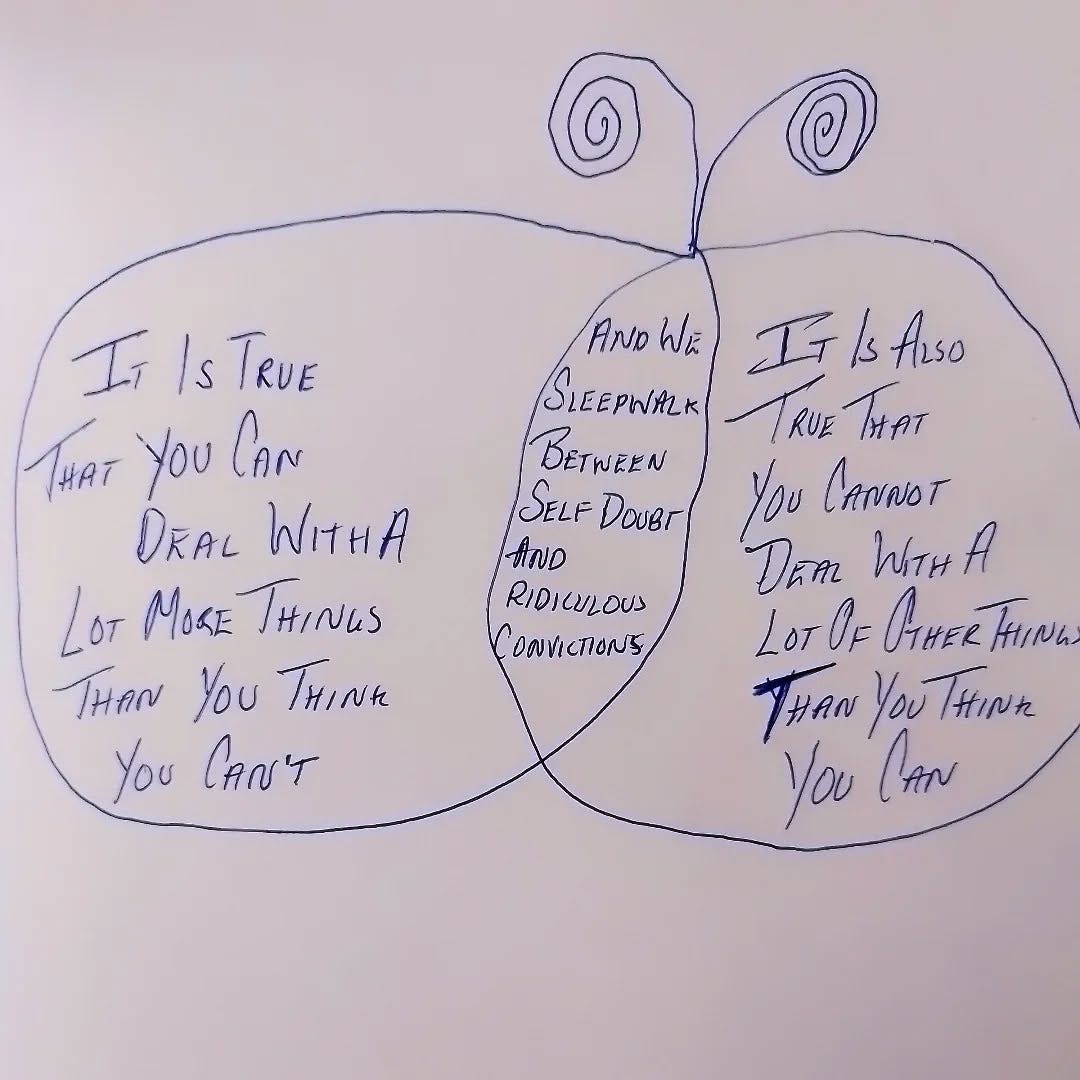 It Is True
That You Can
Deal With A
Lot More Things
Than You Think
You Can't
And We
Sleepwalk
Between
Self Doubt
And
Ridiculous
Convictions
It Is Also
True That
You Cannot
Deal With A
Lot Of Other Things
Than You Think
You Can